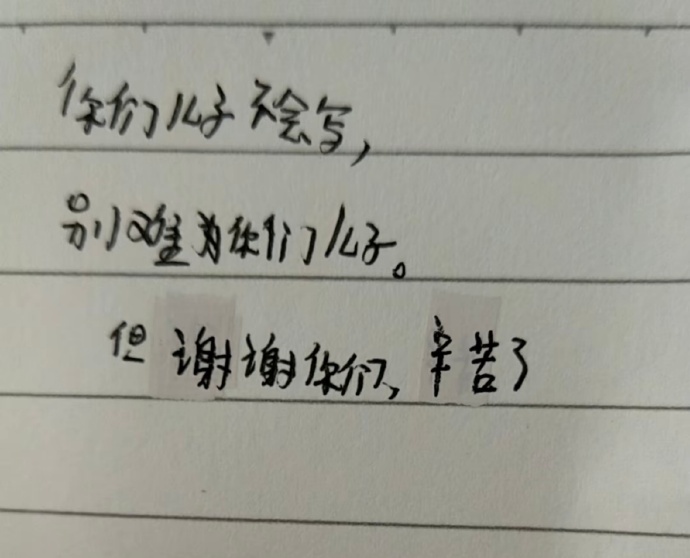 你们儿子不会写，
别难为你们儿子。
但谢谢你们，辛苦了